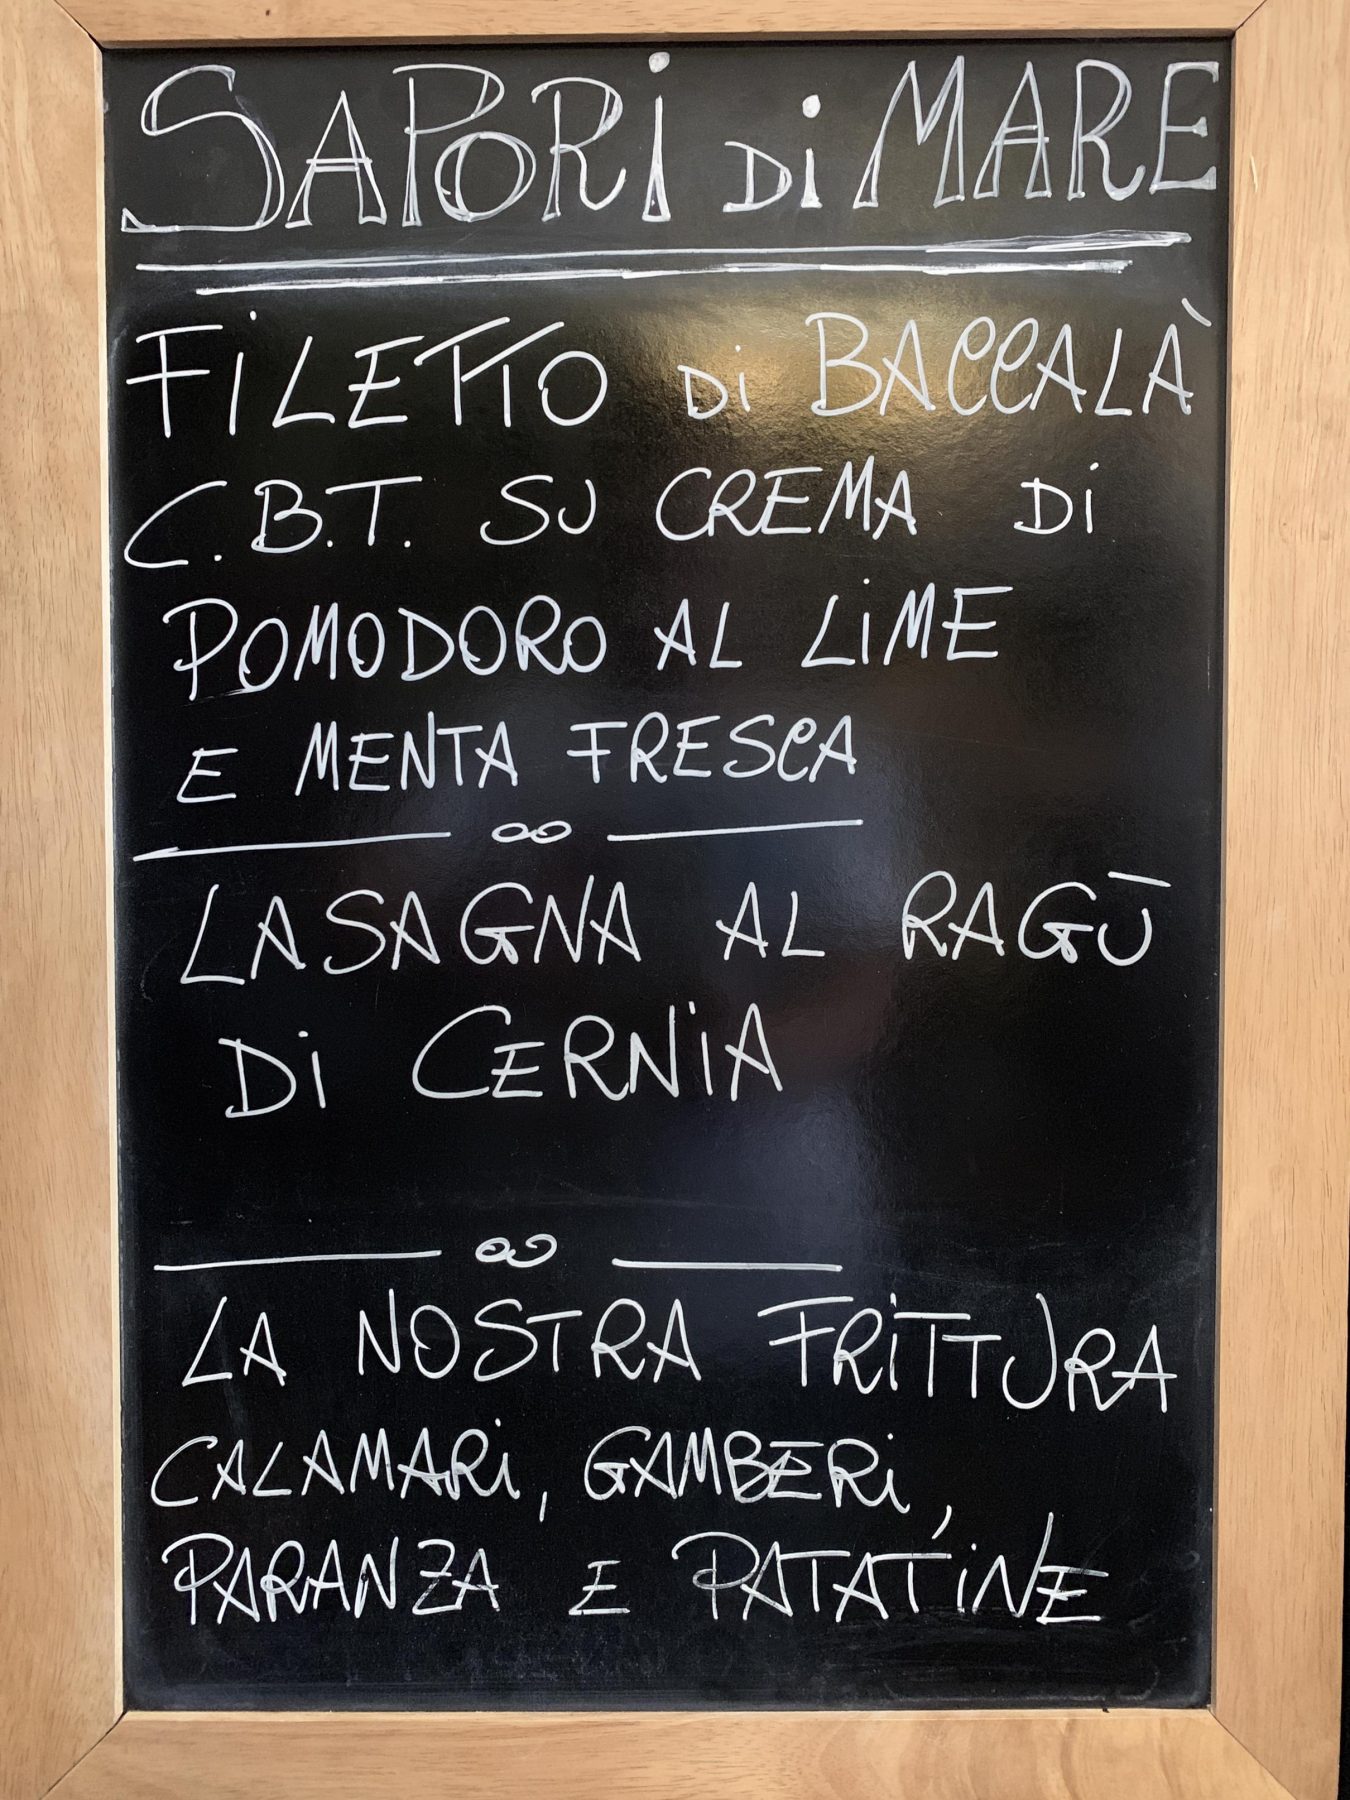 SAPORi Di MARE
FiLETTO Di BACCALÀ
C.B.T. SU CREMA Di
POMODORO AL LiME
E MENTA FRESCA
LASAGNA AL RAGŪ
Di CERNiA
LA NOSTRA FRiTTURA
CALAMARi, GAMBERi,
PARANZA E PATATiNE